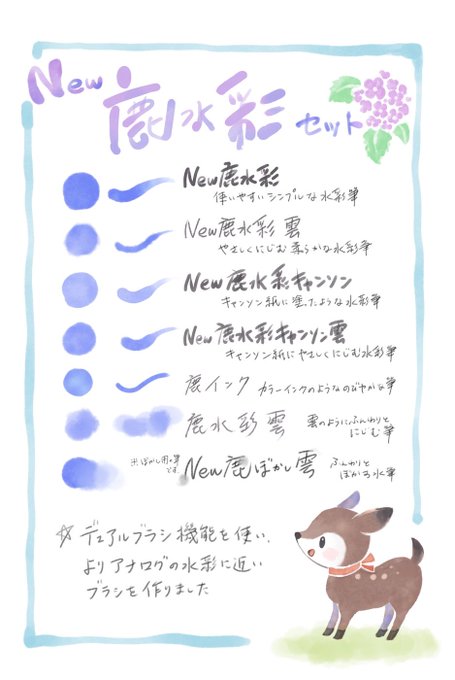 New 鹿水彩 セット
New鹿水彩
使いやすいシンプルな水彩筆
New鹿水彩 雲
やさしくにじむ柔らかな水彩筆
New鹿水彩キャンソン
キャンソン紙に塗ったような水彩筆
New鹿水彩キャンソン雲
キャンソン紙にやさしくにじむ水彩筆
鹿インク カラーインクのようなのびやかな筆
鹿水彩雲 雲のようにふんわりと
にじむ筆
※ぼかし用の筆
です。
New鹿ぼかし雲 ふんわりと
ぼかる水筆
☆デュアルブラシ機能を使い、
よりアナログの水彩に近い
ブラシを作りました